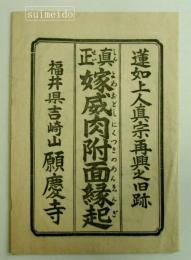 suimeido
蓮如上人真宗再興之旧跡
真正 嫁威肉附面縁起
しん
よめおどしにくつきのめんえんぎ
福井県吉崎山 願慶寺